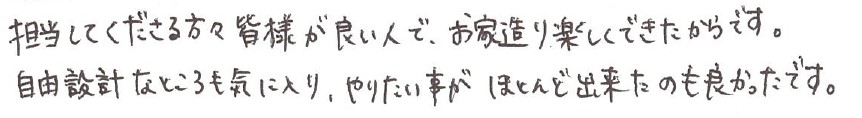 担当してくださる方々皆様が良い人で、お家造り楽しくできたからです。
自由設計なところも気に入り、やりたい事がほとんど出来たのも良かったです。